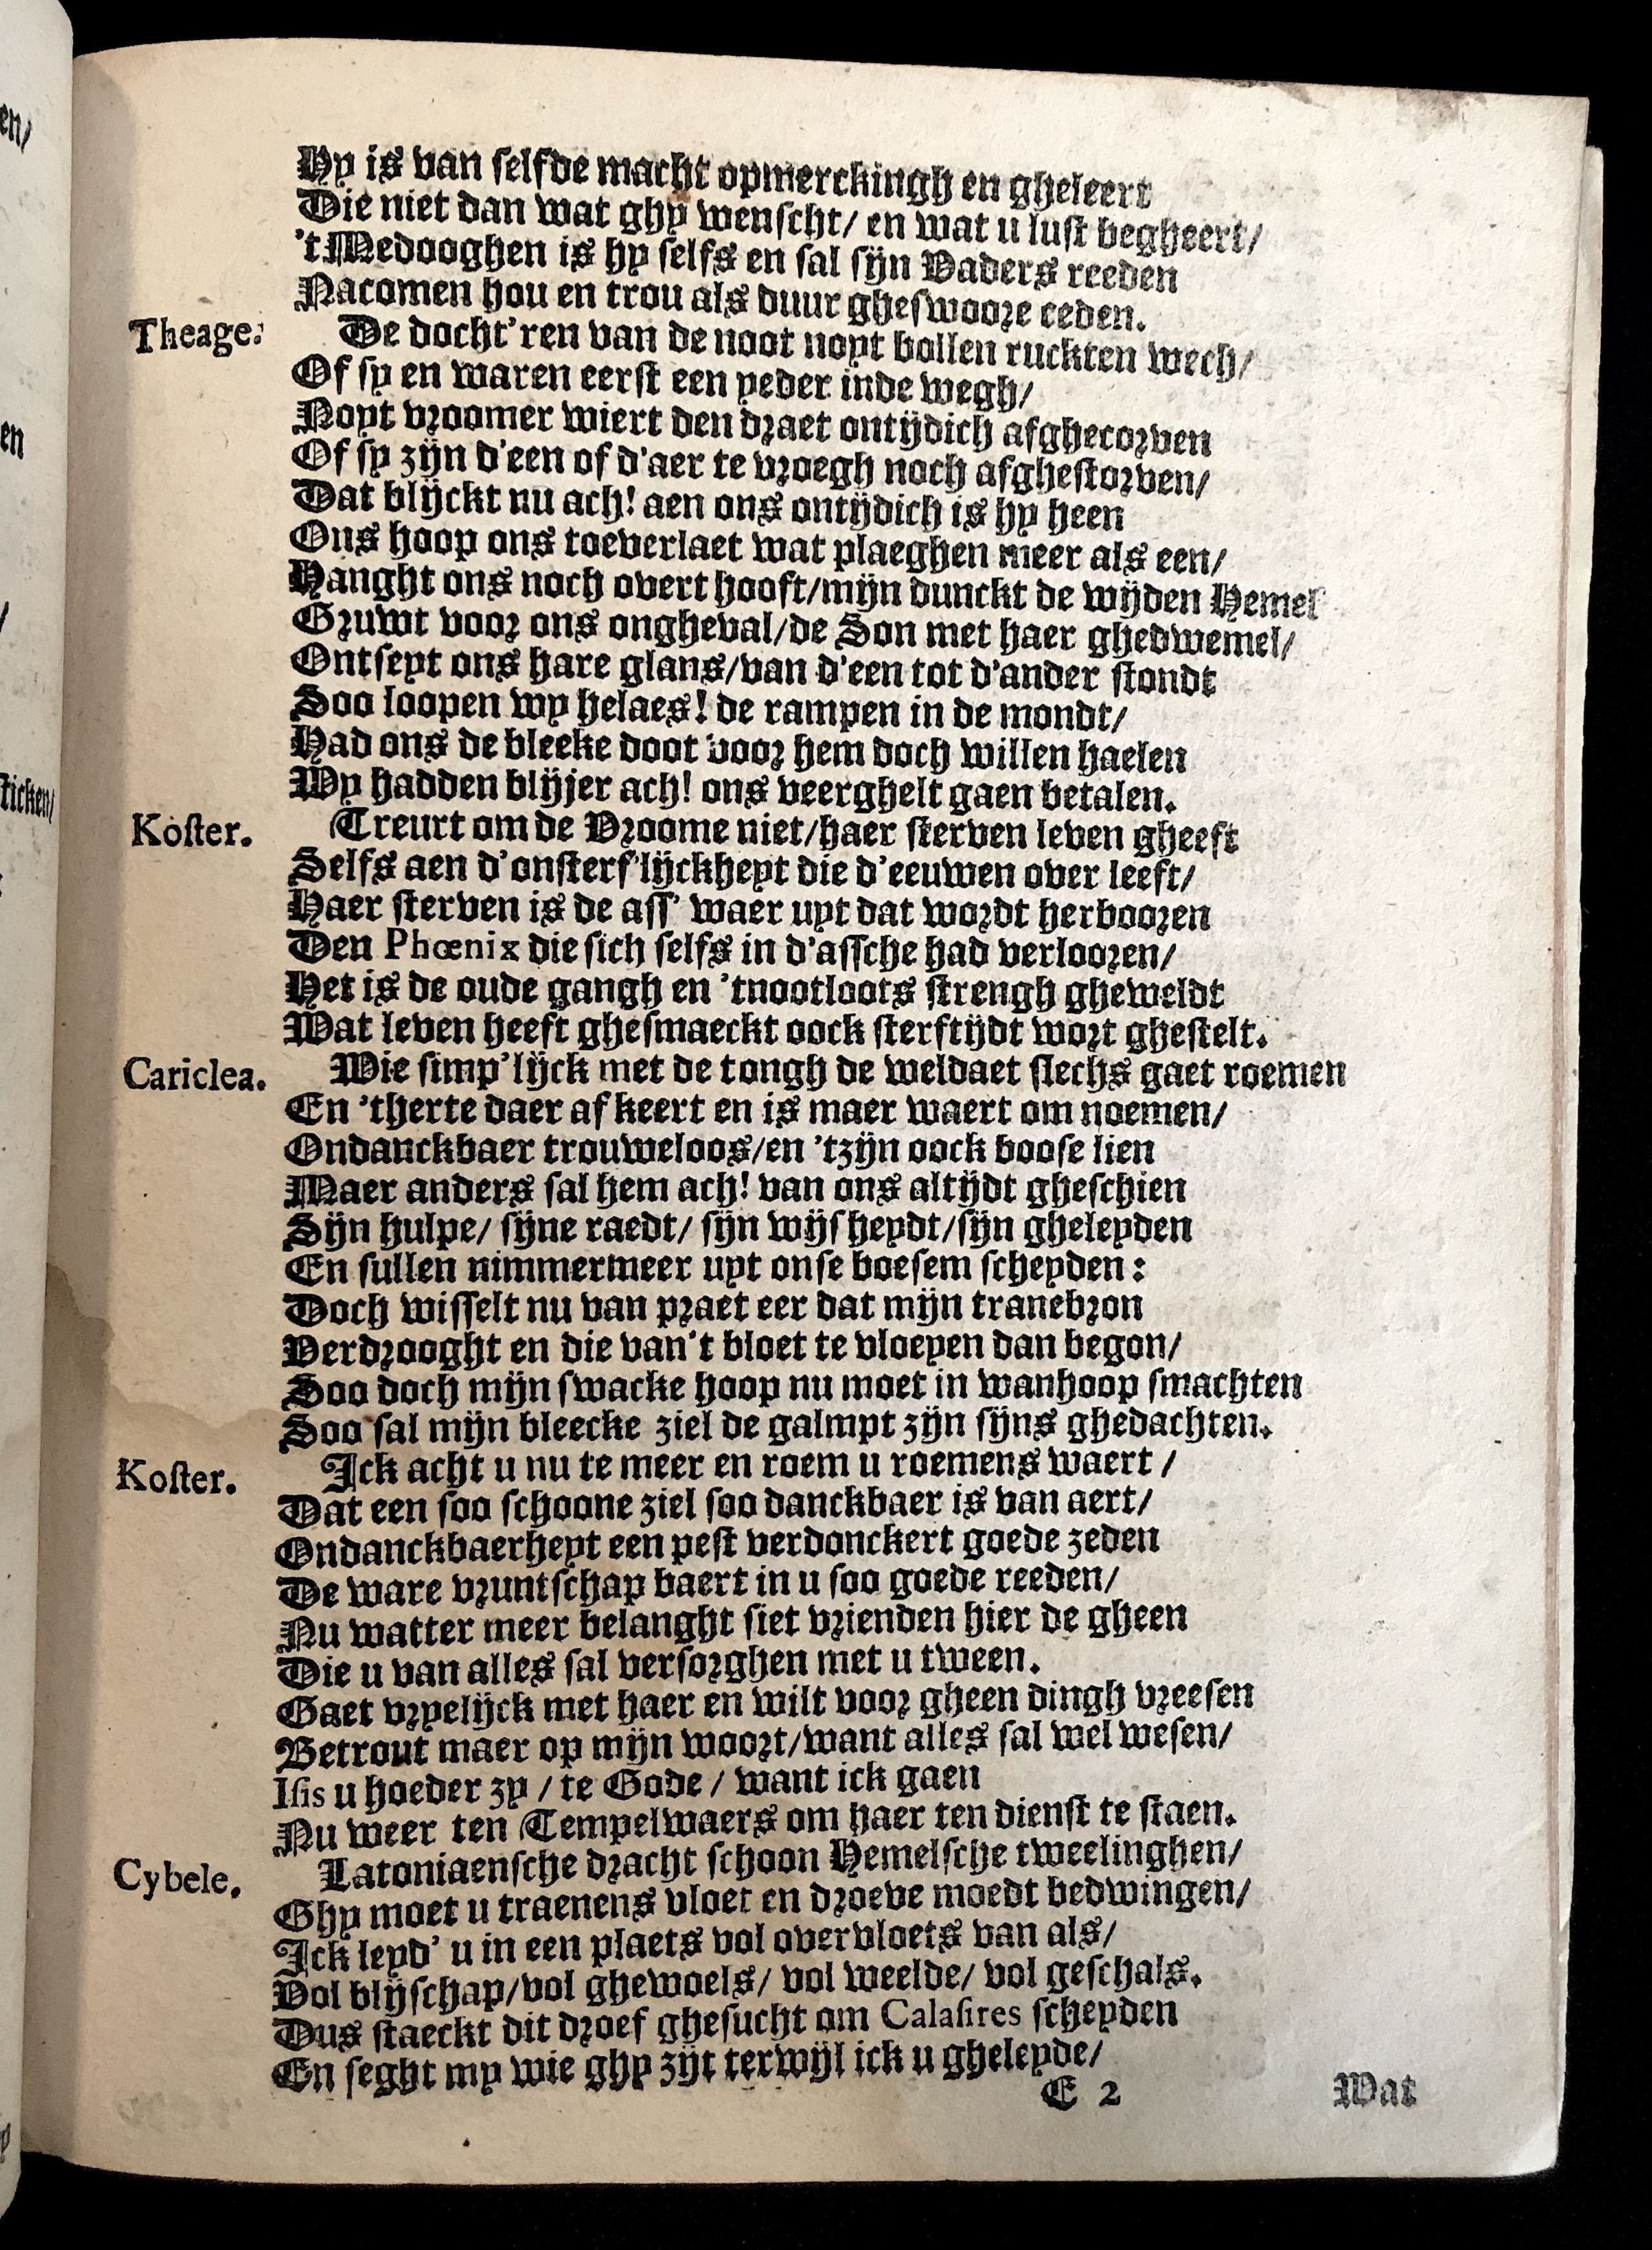 Hy is van selfde macht opmerckingh en gheleert
Die niet dan wat ghy wenscht/ en wat u lust begheert/
't Medooghen is hy selfs en sal sijn Vaders reeden
Nacomen hou en trou als duur gheswoore eeden.
Theage. De docht'ren van de noot noyt bollen ruckten wech/
Of sy en waren eerst een yeder inde wegh/
Noyt vroomer wiert den draet ontijdich afghecorven
Of sy zijn d'een of d'aer te vroegh noch afghestorven/
Dat blijckt nu ach! aen ons ontijdich is hy heen
Ons hoop ons toeverlaet wat plaeghen meer als een/
Hanght ons noch overt hooft/mijn dunckt de wijden Hemel
Gruwt voor ons ongheval/de Son met haer ghedwemel/
Ontseyt ons hare glans/van d'een tot d'ander stondt
Soo loopen wy helaes! de rampen in de mondt/
Had ons de bleeke doot voor hem doch willen haelen
Wy hadden blijjer ach! ons veerghelt gaen betalen.
Koster. Treurt om de Vroome niet/haer sterven leven gheeft
Selfs aen d'onsterf'lijckheyt die d'eeuwen over leeft/
Haer sterven is de ass' waer uyt dat wordt herbooren
Den Phœnix die sich selfs in d'assche had verlooren/
Het is de oude gangh en 'tnootloots strengh gheweldt
Wat leven heeft ghesmaeckt oock sterftijdt wort ghestelt.
Cariclea. Wie simp'lijck met de tongh de weldaet slechs gaet roemen
En 'therte daer af keert en is maer waert om noemen/
Ondanckbaer trouweloos/en 'tzijn oock boose lien
Maer anders sal hem ach! van ons altijdt gheschien
Sijn hulpe/ sijne raedt/ sijn wijsheydt/sijn gheleyden
En sullen nimmermeer uyt onse boesem scheyden:
Doch wisselt nu van praet eer dat mijn tranebron
Verdrooght en die van't bloet te vloeyen dan begon/
Soo doch mijn swacke hoop nu moet in wanhoop smachten
Soo sal mijn bleecke ziel de galmpt zijn sijns ghedachten.
Koster. Ick acht u nu te meer en roem u roemens waert /
Dat een soo schoone ziel soo danckbaer is van aert/
Ondanckbaerheyt een pest verdonckert goede zeden
De ware vruntschap baert in u soo goede reeden/
Nu watter meer belanght siet vrienden hier de gheen
Die u van alles sal versorghen met u tween.
Gaet vryelijck met haer en wilt voor gheen dingh vreesen
Betrout maer op mijn woort/want alles sal wel wesen/
Isis u hoeder zy / te Gode / want ick gaen
Nu weer ten Tempelwaers om haer ten dienst te staen.
Cybele. Latoniaensche dracht schoon Hemelsche tweelinghen/
Ghy moet u traenens vloet en droeve moedt bedwingen/
Ick leyd' u in een plaets vol overvloets van als/
Vol blijschap/vol ghewoels/ vol weelde/ vol geschals.
Dus staeckt dit droef ghesucht om Calasires scheyden
En seght my wie ghy zijt terwijl ick u gheleyde/
E 2 Wat